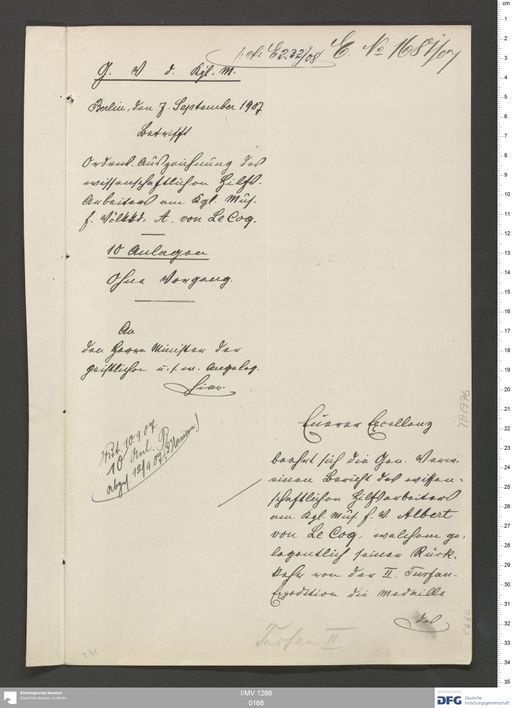 E. No 1684/07
E 232/08
G. V. d. Kgl. M.
Berlin, den 7. September 1907
Betrifft
Ordens-Auszeichnung des
wissenschaftlichen Hilfs-
Arbeiters am Kgl. Mus.
f. Völkkd. A. von Le Coq.
10 Anlagen
Ohne Vorgang.
An
den Herrn Minister der
geistlichen u.s.w. Angeleg.
Hier.
10.9.07
10 Anl.
12/9 07
Euerer Excellenz
beehrt sich die Gen. Verw.
einen Bericht des wissen-
schaftlichen Hilfsarbeiters
am Kgl. Mus. f. V. Albert
von Le Coq, welchem ge-
legentlich seiner Rück-
kehr von der II. Turfan-
Expedition die Medaille
des
Turfan II
Ethnologisches Museum
Staatliche Museen zu Berlin
I/MV 1266
0168
gefördert durch
DFG Deutsche
Forschungsgemeinschaft